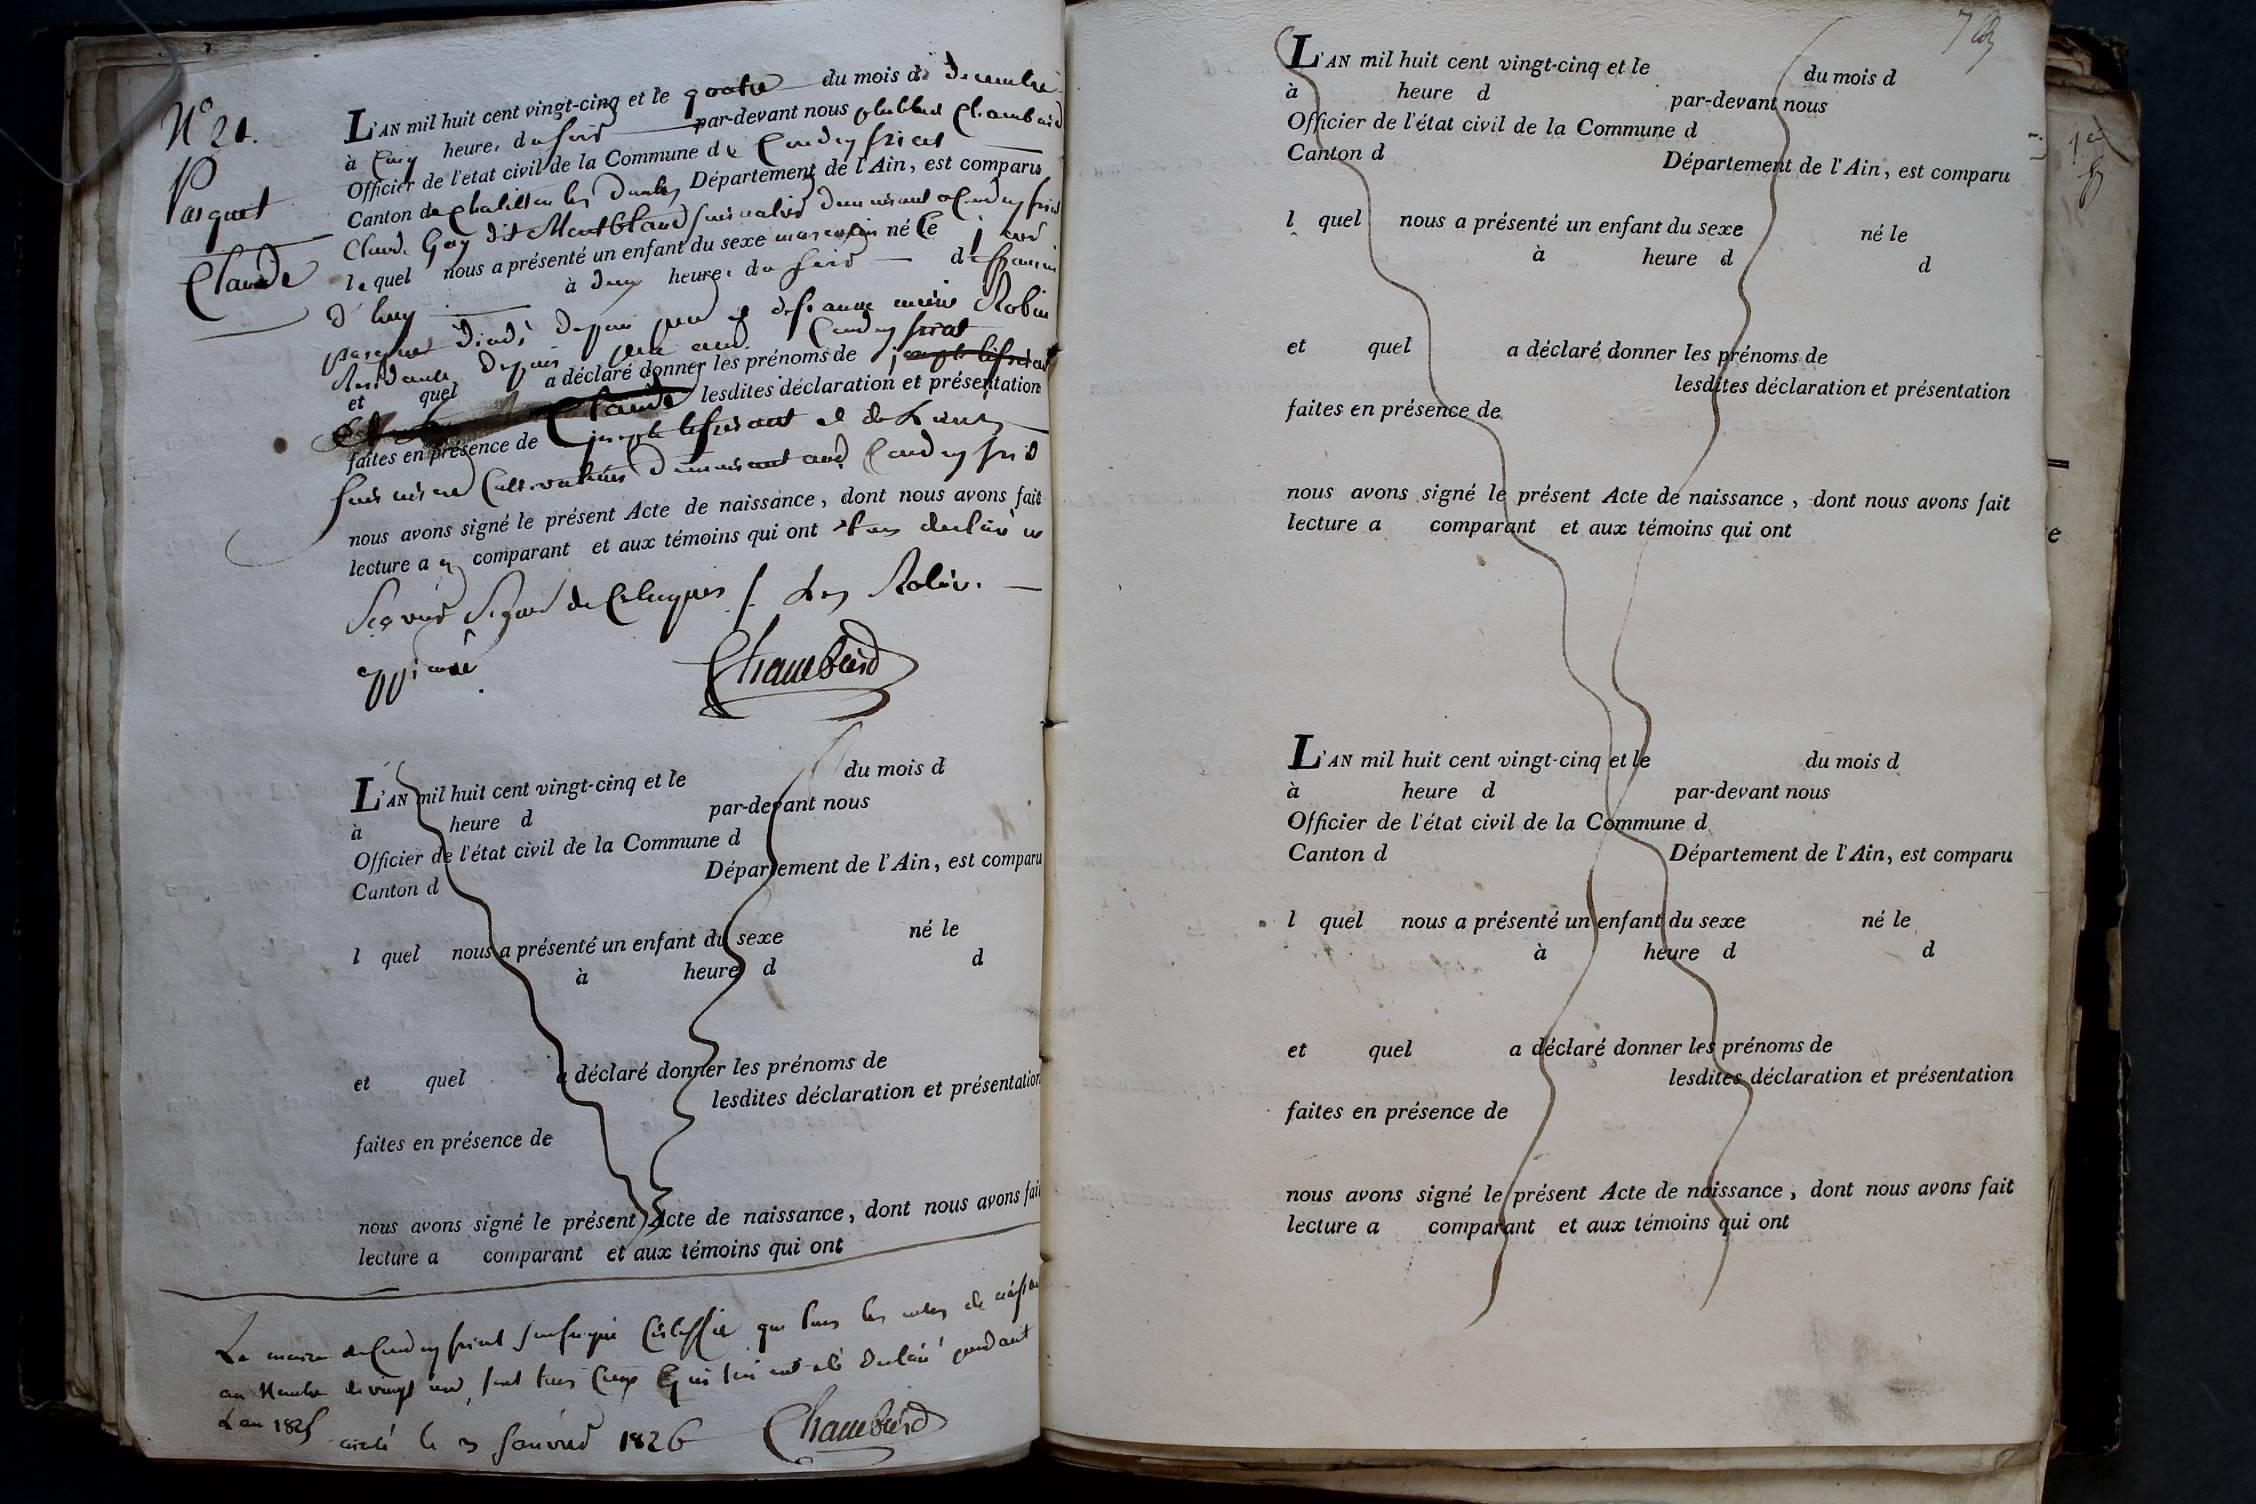 N° 21.
Pasquet
Claude
L'AN mil huit cent vingt-cinq et le quatre du mois de decembre
à Cinq heures du soir par-devant nous Chambard
Officier de l'état civil de la Commune de Condeyssiat
Canton de Chatillon les dombes Département de l'Ain, est comparu
Claude Gay dit Montbland
lequel nous a présenté un enfant du sexe masculin né le jour
d'huy à deux heures du soir de
pasquet depuis et de Robin
depuis Condeyssiat
et quel a déclaré donner les prénoms de
Claude lesdites déclaration et présentation
faites en présence de joseph et de
Cultivateurs demeurant Condeyssiat
nous avons signé le présent Acte de naissance, dont nous avons fait
lecture a comparant et aux témoins qui ont tous declaré ne
signer de Robin.
Chambard
L'AN mil huit cent vingt-cinq et le du mois d
à heure d par-devant nous
Officier de l'état civil de la Commune d
Canton d Département de l'Ain, est comparu
l quel nous a présenté un enfant du sexe né le
à heure d d
et quel a déclaré donner les prénoms de
lesdites déclaration et présentation
faites en présence de
nous avons signé le présent Acte de naissance, dont nous avons fait
lecture a comparant et aux témoins qui ont
Le maire de Condeyssiat que tous les actes de
au Nombre de vingt sont tous Ceux Qui declaré pendant
Lan 1825 le 3 Janvier 1826
Chambard
L'AN mil huit cent vingt-cinq et le du mois d
à heure d par-devant nous
Officier de l'état civil de la Commune d
Canton d Département de l'Ain, est comparu
l quel nous a présenté un enfant du sexe né le
à heure d d
et quel a déclaré donner les prénoms de
lesdites déclaration et présentation
faites en présence de
nous avons signé le présent Acte de naissance, dont nous avons fait
lecture a comparant et aux témoins qui ont
L'AN mil huit cent vingt-cinq et le du mois d
à heure d par-devant nous
Officier de l'état civil de la Commune d
Canton d Département de l'Ain, est comparu
l quel nous a présenté un enfant du sexe né le
à heure d d
et quel a déclaré donner les prénoms de
lesdites déclaration et présentation
faites en présence de
nous avons signé le présent Acte de naissance, dont nous avons fait
lecture a comparant et aux témoins qui ont